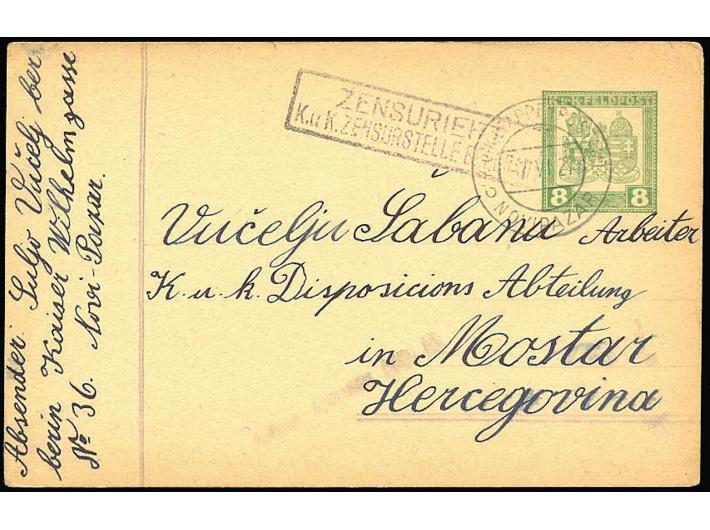 Absender: Suljo Vučelj ber-
berin Kaiser Wilhelmgasse
№ 36. Novi-Pazar.
ZENSURIER
K.u K. ZENSURSTELLE
K.u.K. FELDPOST
8 8
NOVIPAZAR
Vučelju Šabanu Arbeiter
K. u. k. Disposicions Abteilung
in Mostar
Hercegovina